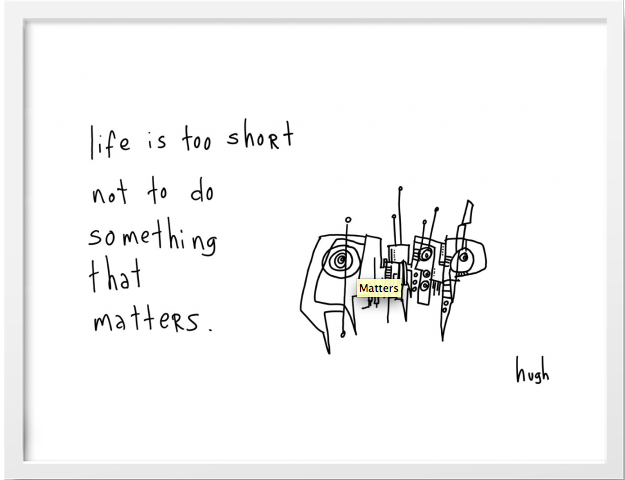 life is too short
not to do
something
that
matters.
Matters
hugh